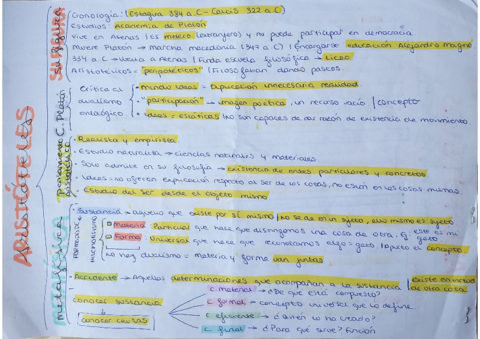 ARISTÓTELES
Su figura
Cronología: (Estagira 384 a.C - Calcis 322 a.C)
Estudios: Academia de Platón
Vive en Atenas (es meteco (extranjero) y no puede participar en democracia
Muere Platón → Marcha macedonia (347 a.C) | Encargarse educación Alejandro Magno
334 a.C → vuelve a Atenas | Funda escuela filosófica → Liceo
Aristotélicos = "peripatéticos" | Filosofaban dando paseos.
Crítica al
dualismo
ontológico
· Mundo ideas = Duplicación innecesaria realidad
· "Participación" → imagen poética, un recurso vacío / concepto
· Ideas = estáticas (no son capaces de dar razón de existencia de movimiento
C. Platón
· Realista y empirista
· Estudio naturalista → ciencias naturales y materiales
· Solo admite en su filosofía → existencia de entes particulares y concretos
· Ideas = no ofrecen explicación respecto al ser de las cosas, no están en las cosas mismas
· Estudio del ser desde el objeto mismo
metafísica
HILEMORFISMO
· Sustancia → aquello que existe por sí mismo | no se da en un sujeto, es el mismo el sujeto
Materia: Particular que hace que distingamos una cosa de otra. Ej: este es mi gato
Forma: Universal que hace que reconozcamos algo = gato | gracias al concepto
No hay dualismo = materia y forma van juntas
· Accidente → Aquellas determinaciones que acompañan a la sustancia | existe en virtud de otra cosa.
Conocer sustancia
Conocer causas
c. material → ¿De qué está compuesto?
c. formal → concepto universal que lo define
c. eficiente → ¿Quién lo ha creado?
c. final → ¿Para qué sirve? Función